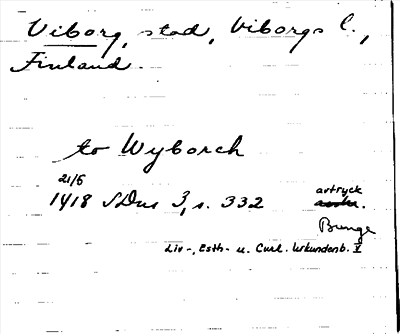 Viborg, stad, Viborgs l.,
Finland.
to Wyborch
21/6
1418 SDns 3, s. 332 avtryck
Bunge
Liv-, Esth- u. Curl. Urkundenb. V